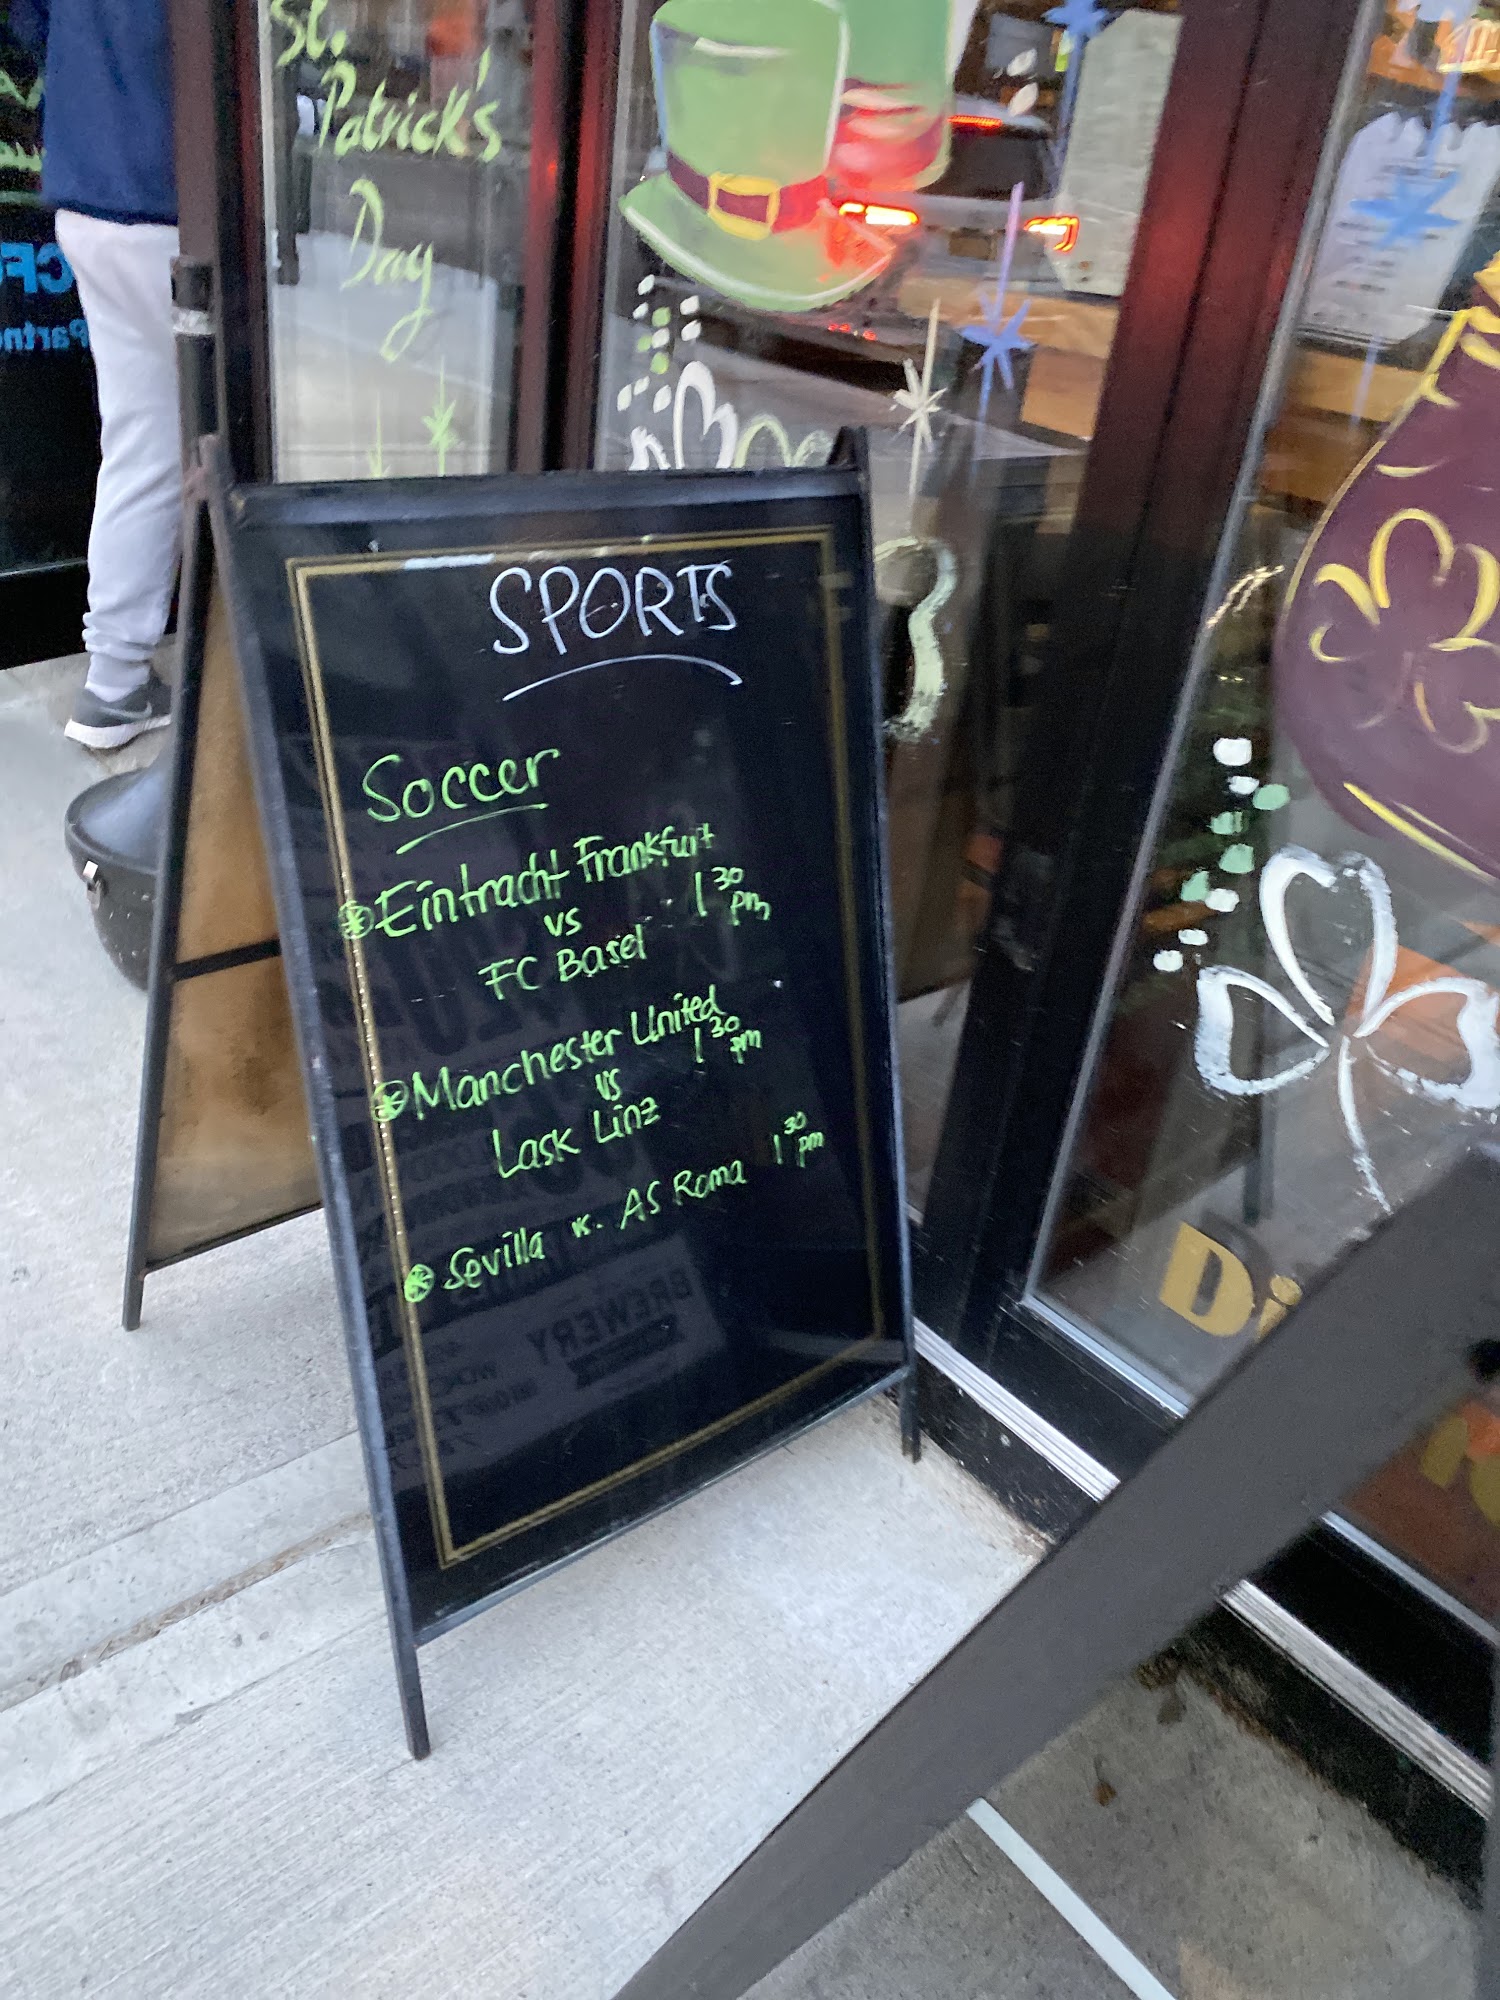 St.
Patrick's
Day
SPORTS
Soccer
Eintracht Frankfurt
vs
1 30 pm
FC Basel
Manchester United
1 30 pm
vs
Lask Linz
Sevilla vs. AS Roma 1 30 pm
BREWERY
Di